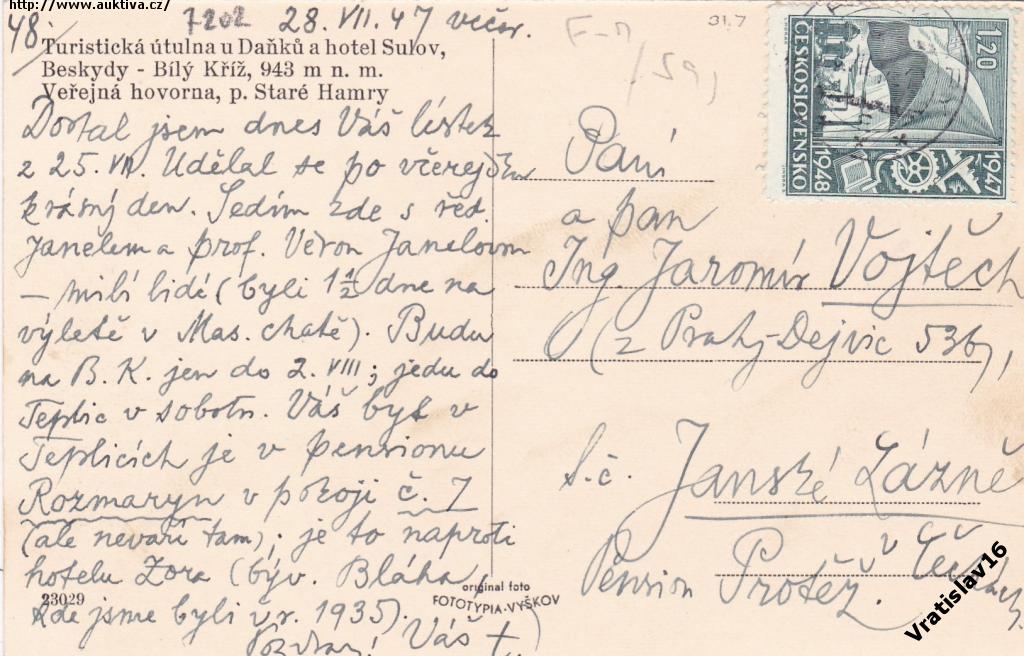 http://www.auktiva.cz/
48.
7202 28. VII. 47 večer.
31.7
Turistická útulna u Daňků a hotel Sulov,
Beskydy - Bílý Kříž, 943 m n. m.
Veřejná hovorna, p. Staré Hamry
Dostal jsem dnes Váš lístek
z 25. VII. Udělal se po včerejším
krásný den. Sedím zde s řed.
Janelem a prof. Janelovou
— milí lidé (byli 1 1/2 dne na
výletě v Mas. chatě). Budu
na B. K. jen do 2. VIII; jedu do
Teplic v sobotu. Váš byt v
Teplicích je v pensionu
Rozmaryn v pokoji č. 7
(ale nevaří tam); je to naproti
hotelu Zora (býv. Bláha,
kde jsme byli v r. 1935).
Pozdrav! Váš
23029
original foto
FOTOTYPIA-VYŠKOV
1·20
ČESKOSLOVENSKO
1947
1948
Paní
a pan
Ing. Jaromír Vojtěch
(z Prahy-Dejvic 536),
t. č. Janské Lázně
v Čechách
Pension Protěž.
Vratislav16